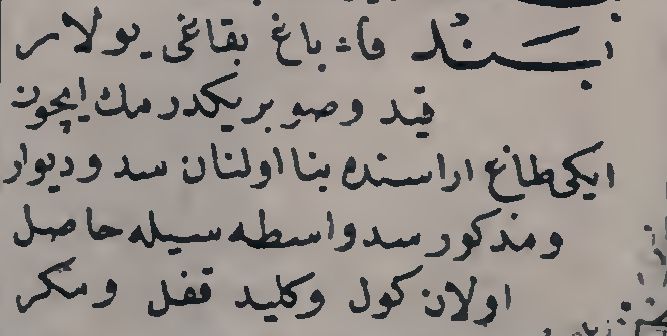 بَنْد فا: باغ بقاغى يولار
قيد وصو بريكدرمك ايچون
ايكى طاغ اراسنده بنا اولنان سد و ديوار
و مذكور سد واسطه سيله حاصل
اولان كول و كليد قفل و مكر